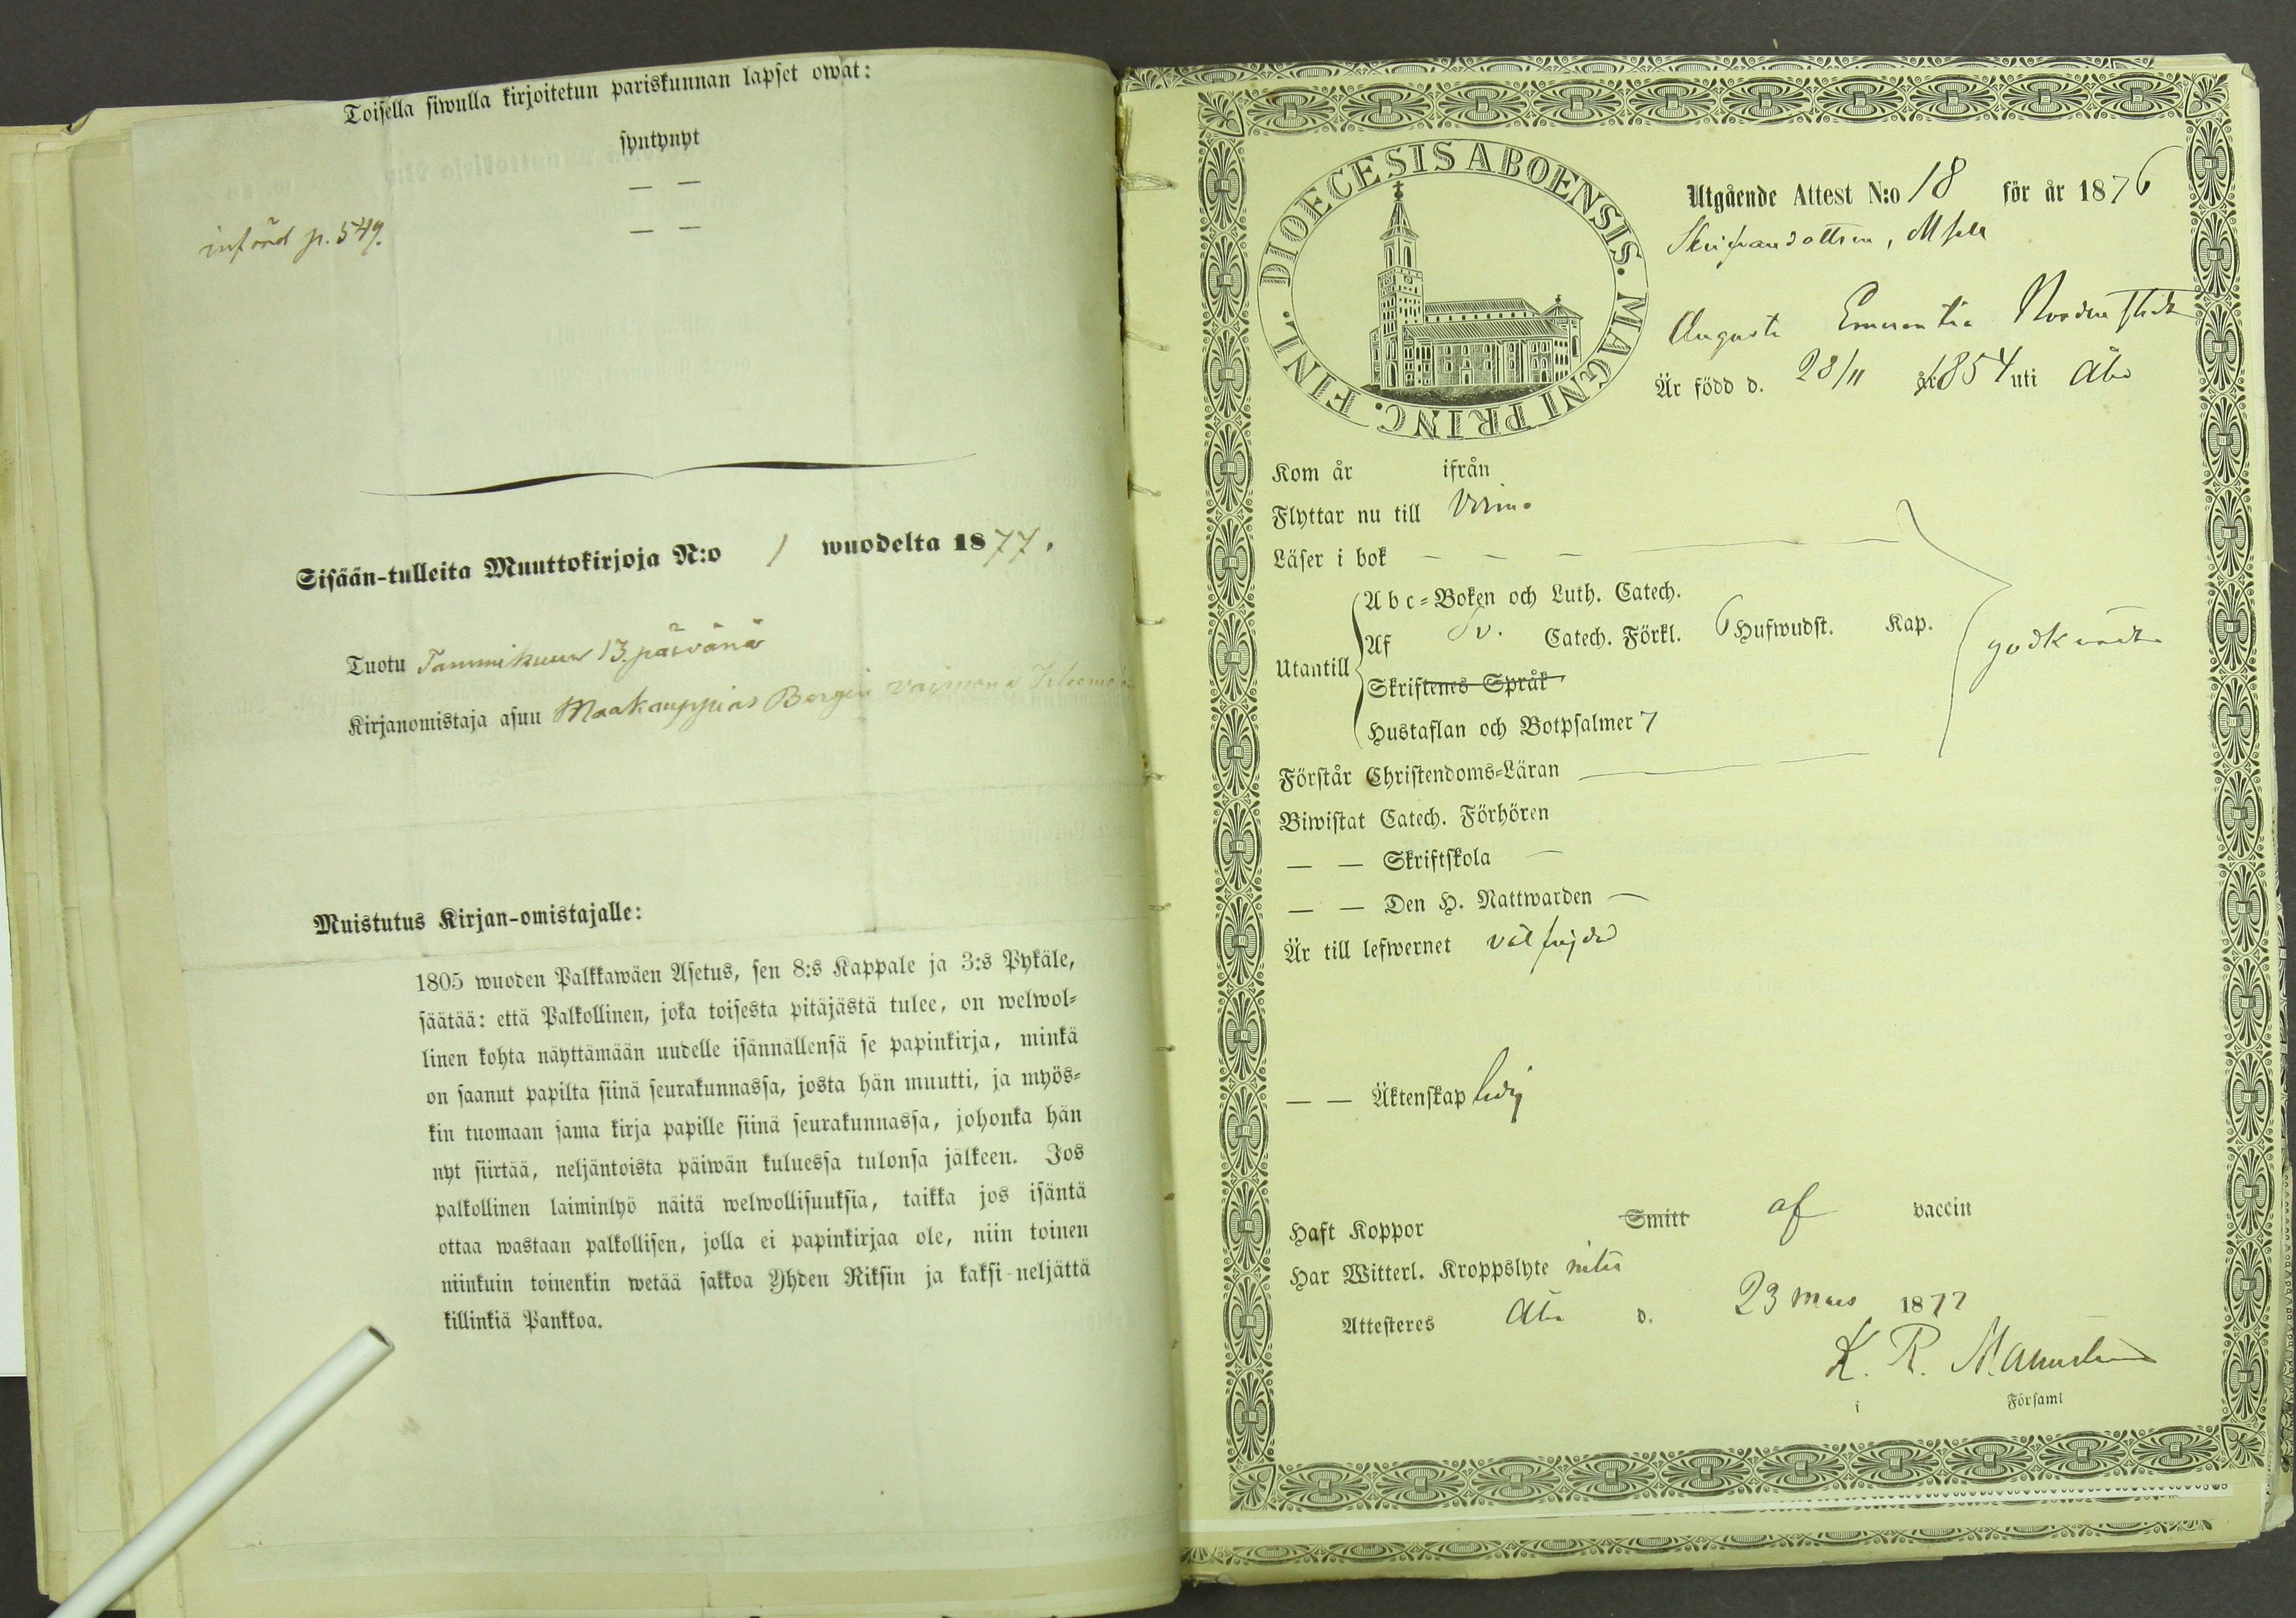 Toisella siwulla kirjoitetun pariskunnan lapset owat:
syntynyt
— —
— —
införd p. 549.
Sisään-tulleita Muuttokirjoja N:o 1 wuodelta 1877.
Tuotu Tammikuun 13. päivänä
Kirjanomistaja asuu Maakauppias Bergin vaimona
Muistutus Kirjan-omistajalle:
1805 wuoden Palkkawäen Asetus, sen 8:s Kappale ja 3:s Pykäle,
säätää: että Palkollinen, joka toisesta pitäjästä tulee, on welwol=
linen kohta näyttämään uudelle isännällensä se papinkirja, minkä
on saanut papilta siinä seurakunnassa, josta hän muutti, ja myös=
kin tuomaan sama kirja papille siinä seurakunnassa, johonka hän
nyt siirtää, neljäntoista päiwän kuluessa tulonsa jälkeen. Jos
palkollinen laiminlyö näitä welwollisuuksia, taikka jos isäntä
ottaa wastaan palkollisen, jolla ei papinkirjaa ole, niin toinen
niinkuin toinenkin wetää sakkoa Yhden Riksin ja kaksi neljättä
killinkiä Pankkoa.
DIOECESIS ABOENSIS. MAGNI PRINC. FINL.
Utgående Attest N:o 18 för år 1876
Skepparedottren, Mslle
Augusta Emerentia
Är född d. 28/11 år 1854 uti Åbo
Kom år ifrån
Flyttar nu till Virmo
Läser i bok — — —
Utantill
Abc=Boken och Luth. Catech.
Af Sv. Catech. Förkl. 6 Hufwudst. Kap.
Skriftenes Språk
Hustaflan och Botpsalmer 7
godkändt
Förstår Christendoms=Läran
Biwistat Catech. Förhören
— — Skriftskola —
— — Den H. Nattwarden —
Är till lefwernet välfrejdad
— — Äktenskap ledig
Haft Koppor Smitt af vaccin
Har Witterl. Kroppslyte intet
Attesteres Åbo d. 23 Mars 1877
K. R.
i Församl